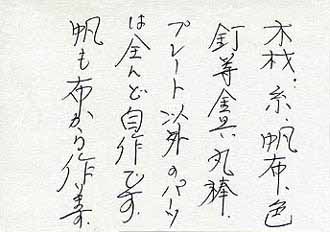 木材、糸、帆布、色
釘等金具、丸棒、
プレート以外のパーツ
は全んど自作です。
帆も布から作ります。